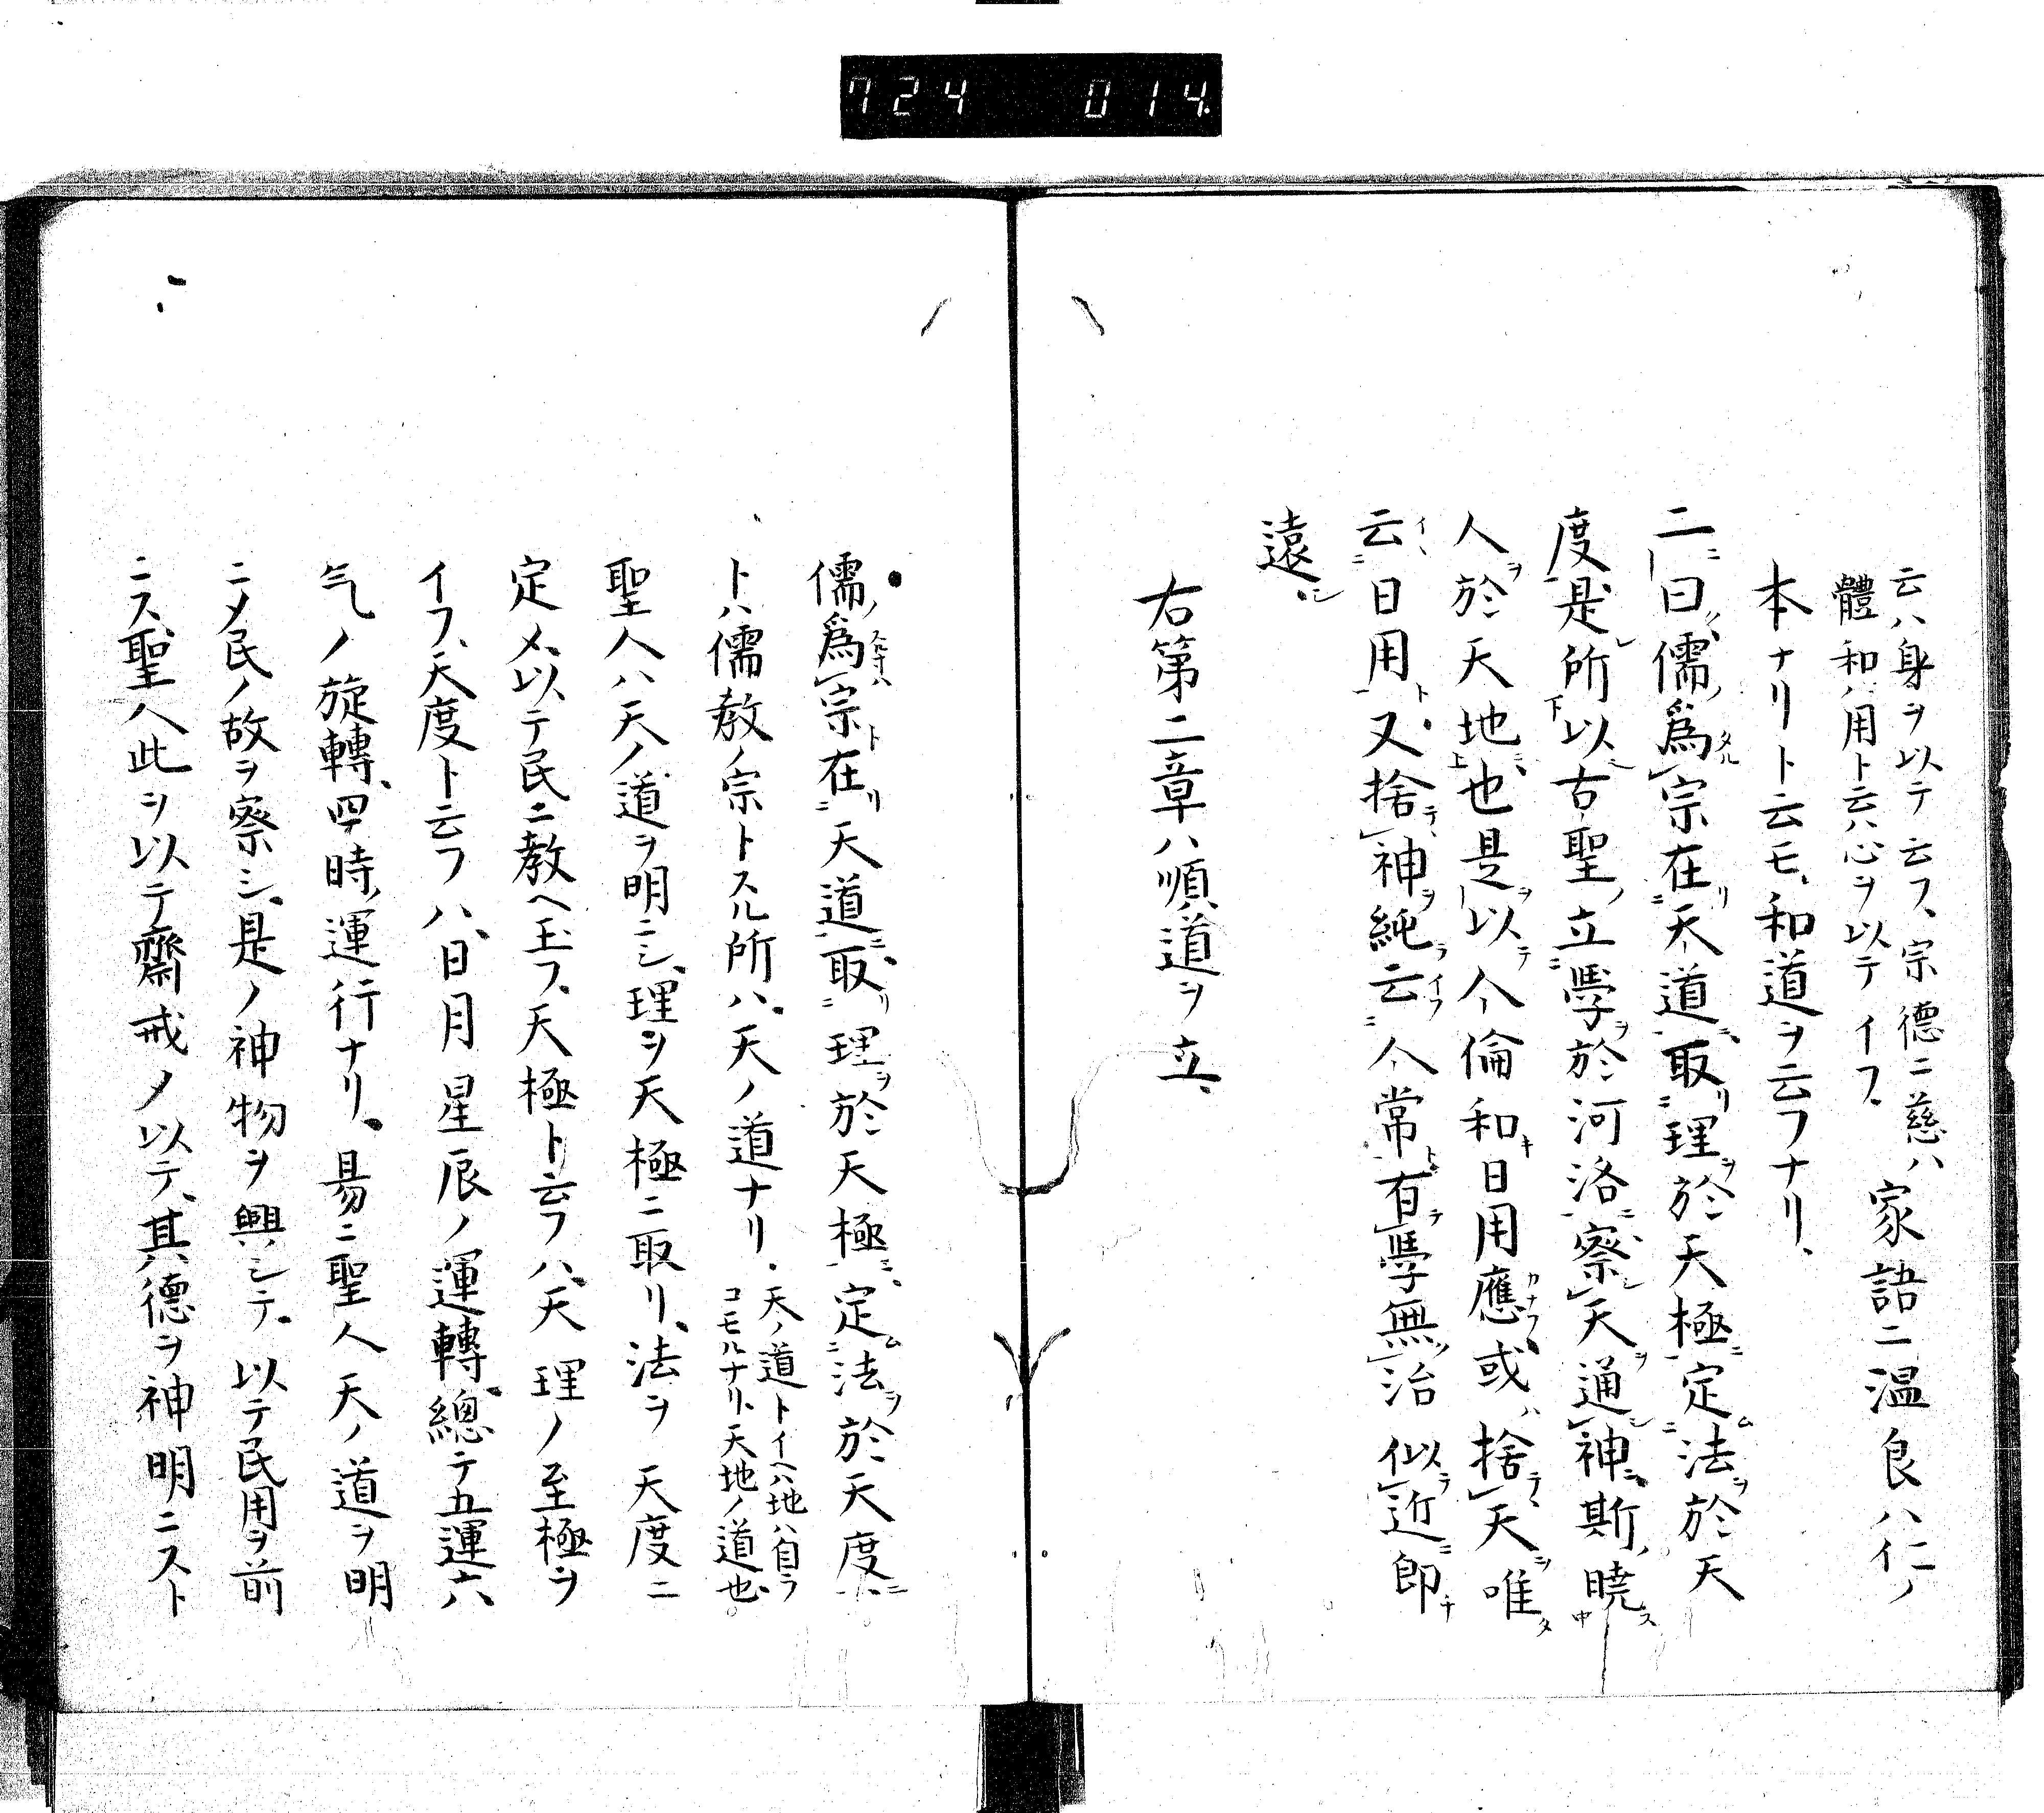 724 014
云ハ身ヲ以テ云フ、宗德ニ慈ハ
體和ハ用ト云ハ心ヲ以テイフ
家語ニ温良ハ仁ノ
本ナリト云モ、和道ヲ云フナリ、
二曰儒爲宗在天道取理於天極定法於天
度是所以古聖立學於河洛察天通神斯曉
人於天地也是以人倫和日用應或捨天唯
云日用又捨神純云人常有學無治似近即
遠
右第二章ハ順道ヲ立、
儒爲宗在天道取理於天極定法於天度
トハ儒教ノ宗トスル所ハ、天ノ道ナリ、
天ノ道トイヘハ地ハ自ラ
コモルナリ、天地ノ道也
聖人ハ天ノ道ヲ明ニシ、理ヲ天極ニ取リ、法ヲ天度ニ
定メ、以テ民ニ教ヘ玉フ、天極ト云フハ、天理ノ至極ヲ
イフ、天度ト云フハ、日月星辰ノ運轉、總テ五運六
气ノ旋轉、四時ノ運行ナリ、昜ニ聖人天ノ道ヲ明
ニメ民ノ故ヲ察シ、是ノ神物ヲ興シテ、以テ民用ヲ前
ニス、聖人此ヲ以テ齋戒メ以テ、其德ヲ神明ニスト